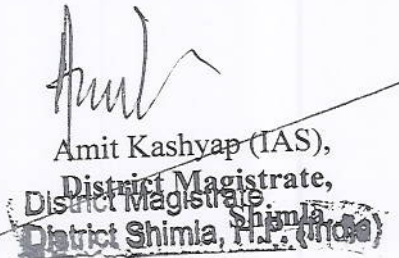 Amit Kashyap (IAS),
District Magistrate,
Shimla
District Magistrate
District Shimla, H.P. (India)